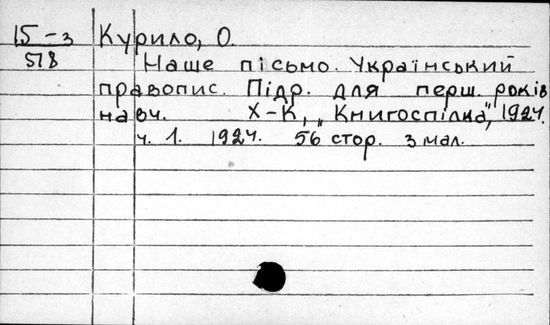 15-3 Курило, О.
518 Наше пісьмо. Український
правопис. Підр. для перш. років
навч. Х-К, „Книгоспілка", 1924.
ч. 1. 1924. 56 стор. з мал.